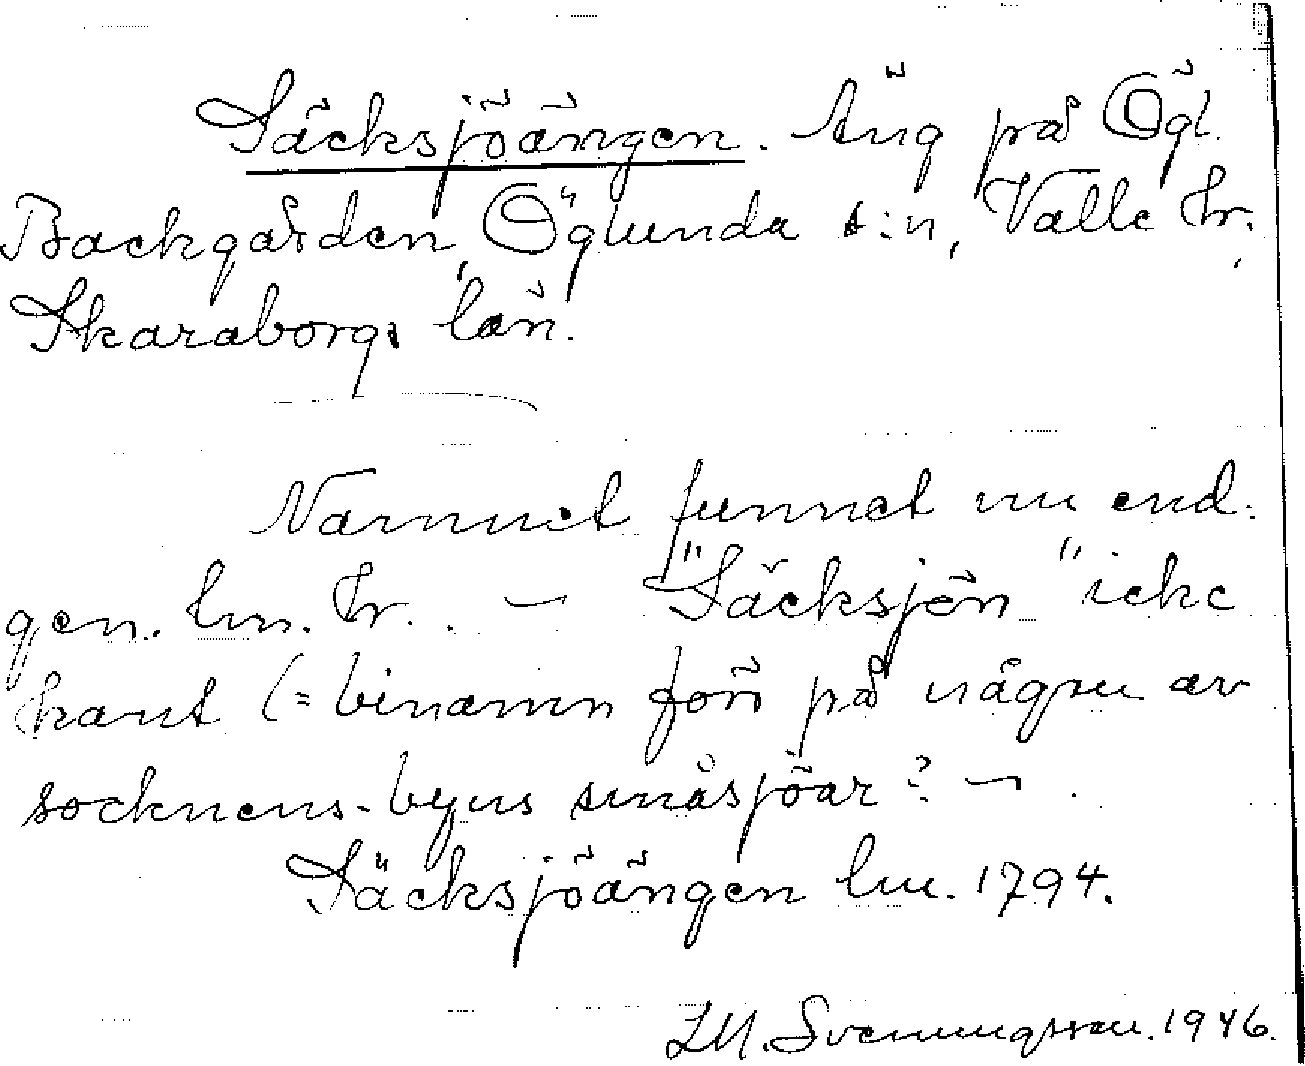 Säcksjöängen. Äng på Ögl.
Backgården, Öglunda s:n, Valle hr.
Skaraborgs län.
Namnet funnet nu end.
gen. lm. hr. — "Säcksjön" icke
känt (= binamn för på några av
socknens-byns småsjöar? —.
Säcksjöängen lm. 1794.
Svenungsson. 1946.